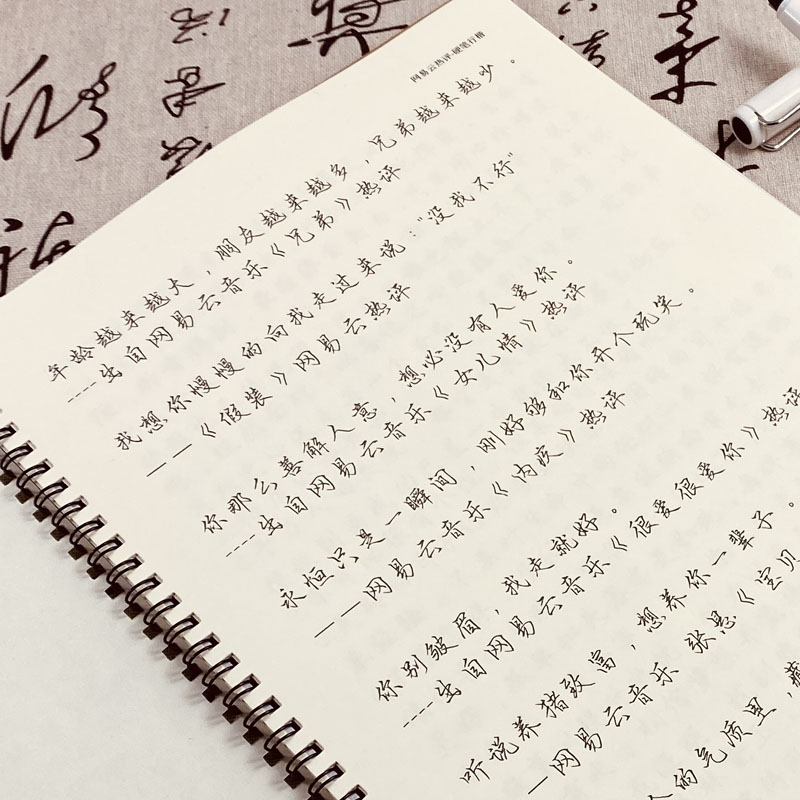 网易云热评·硬笔行楷
年龄越来越大，朋友越来越多，兄弟越来越少。
----出自网易云音乐《兄弟》热评
我想你慢慢的向我走过来说："没我不行"
——《假装》网易云热评
你那么善解人意，想必没有人爱你。
----出自网易云音乐《女儿情》热评
永恒只是一瞬间，刚好够和你开个玩笑。
——网易云音乐《内疚》热评
你别皱眉，我走就好。
----出自网易云音乐《很爱很爱你》热评
听说养猪致富，想养你一辈子。
—网易云音乐 张悬《宝贝
人的气质里，藏